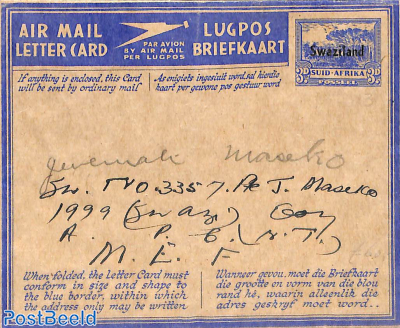 AIR MAIL
LETTER CARD
PAR AVION
BY AIR MAIL
PER LUGPOS
LUGPOS
BRIEFKAART
Swaziland
3D SUID-AFRIKA 3D
POSSEËL
If anything is enclosed, this Card
will be sent by ordinary mail
As enigiets ingesluit word, sal hierdie
kaart per gewone pos gestuur word
Jeremiah Maseko
Sw. No. 3357. Pte J. Maseko
1999 (Swaz) Coy
A. P. C. (S. T.)
M. E. F
When folded, the Letter Card must
conform in size and shape to
the blue border, within which
the address only may be written
Wanneer gevou, moet die Briefkaart
die grootte en vorm van die blou
rand hê, waarin alleenlik die
adres geskryf moet word
PostBeeld
© PostBeeld